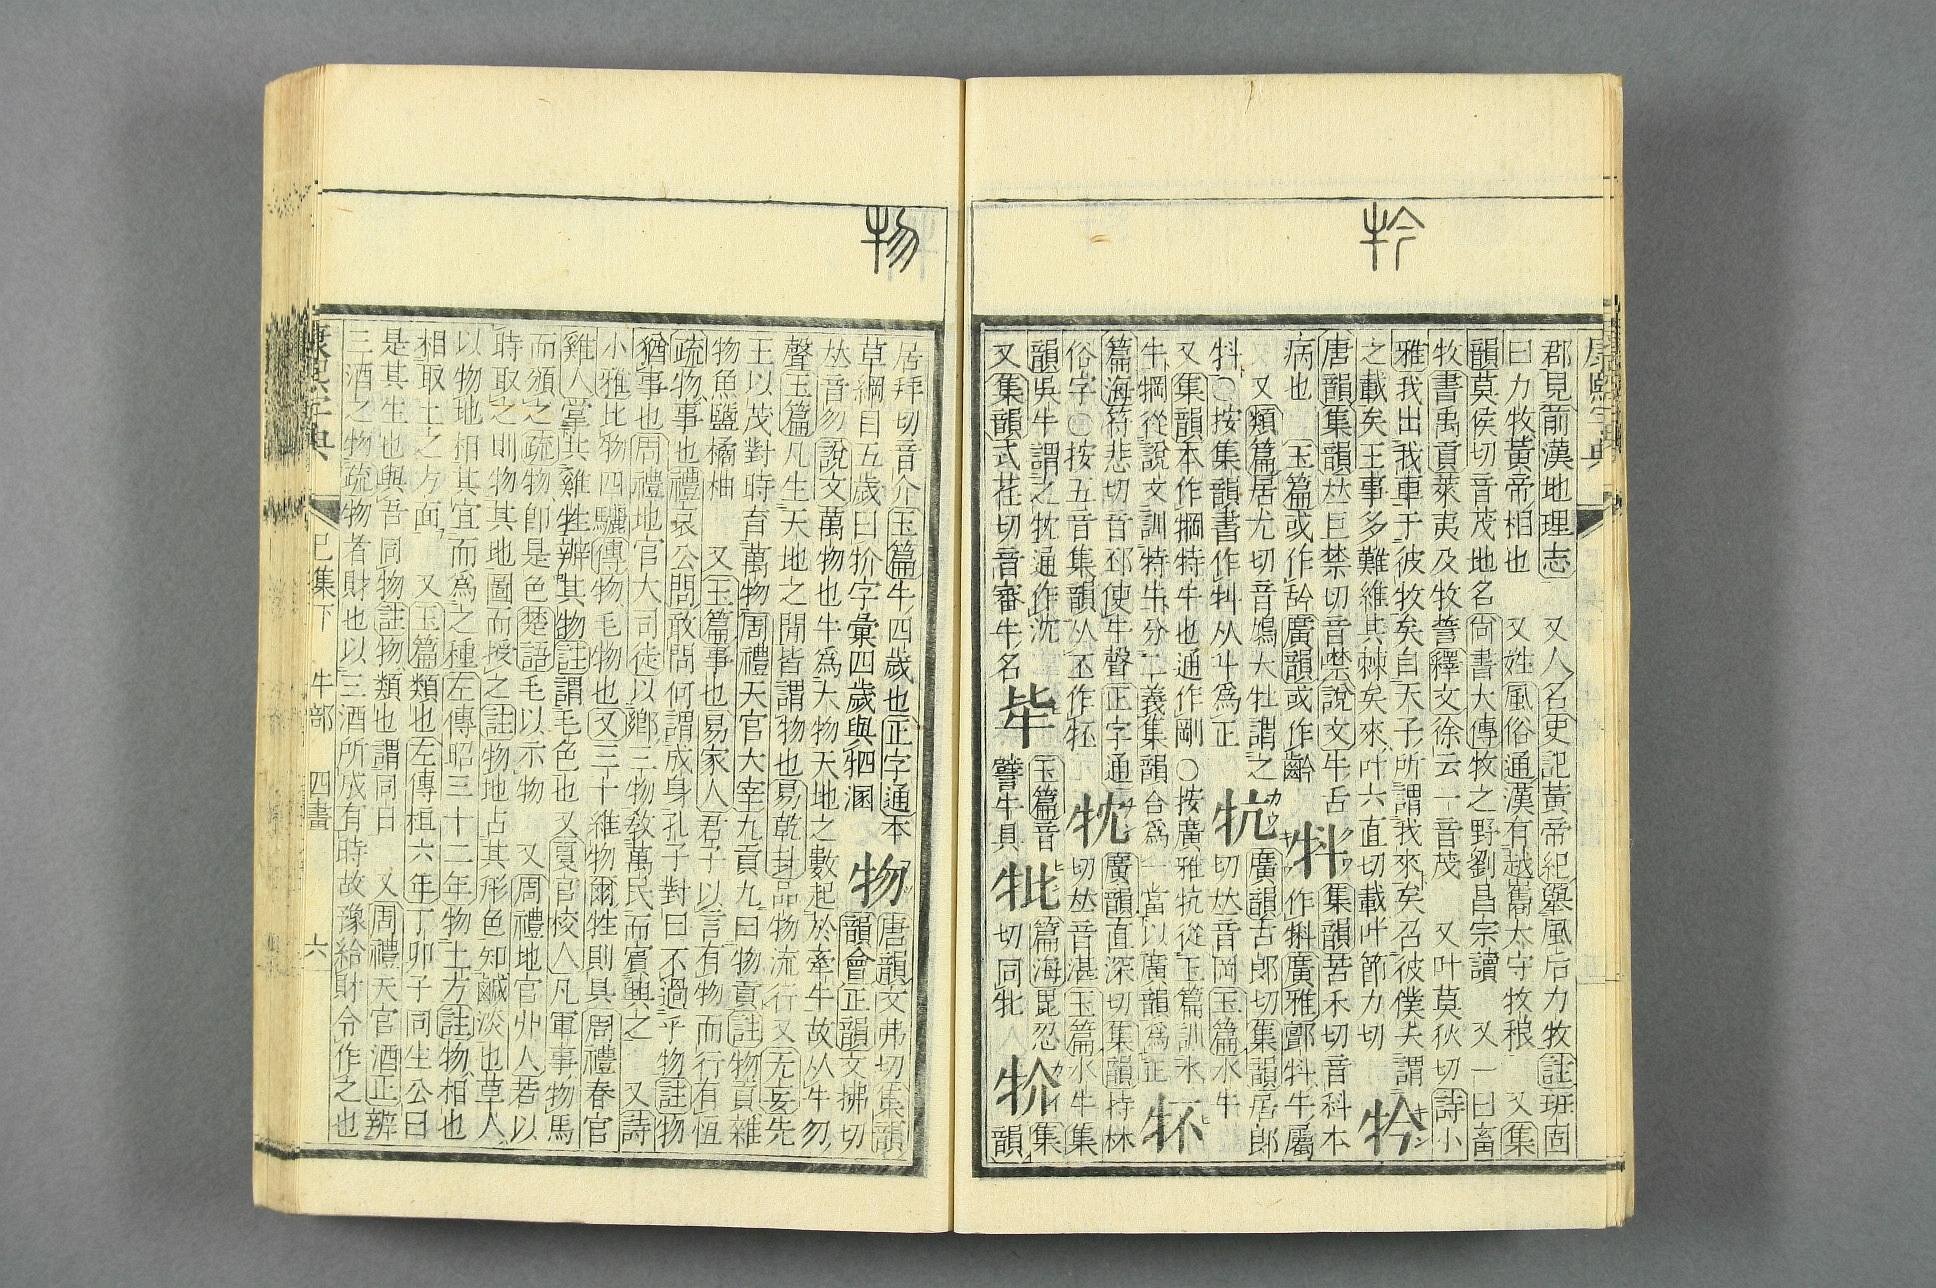 郡見前漢地理志 又人名史記黃帝紀舉風后力牧註班固
曰力牧黃帝相也 又姓風俗通漢有越巂太守牧稂 又集
韻莫侯切音茂地名尙書大傳牧之野劉昌宗讀 又一曰畜
牧書禹貢萊夷及牧誓釋文徐云一音茂 又叶莫狄切詩小
雅我出我車于彼牧矣自天子所謂我來矣召彼僕夫謂
之載矣王事多難維其棘矣來叶六直切載叶節力切
唐韻集韻𠀤巨禁切音噤說文牛舌 集韻苦禾切音科本
病也 玉篇或作 廣韻或作 作 廣雅 牛屬
又類篇居尤切音鳩大牡謂之 牨 廣韻古郎切集韻居郎
○按集韻書作 从斗爲正 切𠀤音岡玉篇水牛
又集韻本作犅特牛也通作剛○按廣雅牨從玉篇訓水
牛犅從說文訓特牛分二義集韻合爲一當以廣韻爲正
篇海符悲切音邳使牛聲正字通 牞 廣韻直深切集韻持林
俗字○按五音集韻从丕作 切𠀤音湛玉篇水牛集
韻吳牛謂之 通作沈 玉篇音 牛具 篇海毘忍切同牝 集
又集韻式荏切音審牛名 韻
康熙字典 巳集下 牛部 四畫 六
物
居拜切音介玉篇牛四歲也正字通本 物 唐韻文弗切集韻
草綱目五歲曰㸬字彙四歲與牭溷 韻會正韻文拂切
𠀤音勿說文萬物也牛爲大物天地之數起於牽牛故从牛勿
聲玉篇凡生天地之閒皆謂物也易乾卦品物流行又无妄先
王以茂對時育萬物周禮天官大宰九貢九曰物貢註物貢雜
物魚鹽橘柚 又玉篇事也易家人君子以言有物而行有恆
疏物事也禮哀公問敢問何謂成身孔子對曰不過乎物註物
猶事也周禮地官大司徒以鄉三物敎萬民而賓興之 又詩
小雅比物四驪傳物毛物也又三十維物爾牲則具周禮春官
雞人掌共雞牲辨其物註謂毛色也又夏官校人凡軍事物馬
而頒之疏物卽是色楚語毛以示物 又周禮地官卝人若以
時取之則物其地圖而授之註物地占其形色知鹹淡也草人
以物地相其宜而爲之種左傳昭三十二年物土方註物相也
相取土之方面 又玉篇類也左傳桓六年丁卯子同生公曰
是其生也與吾同物註物類也謂同日 又周禮天官酒正辨
三酒之物疏物者財也以三酒所成有時故豫給財令作之也